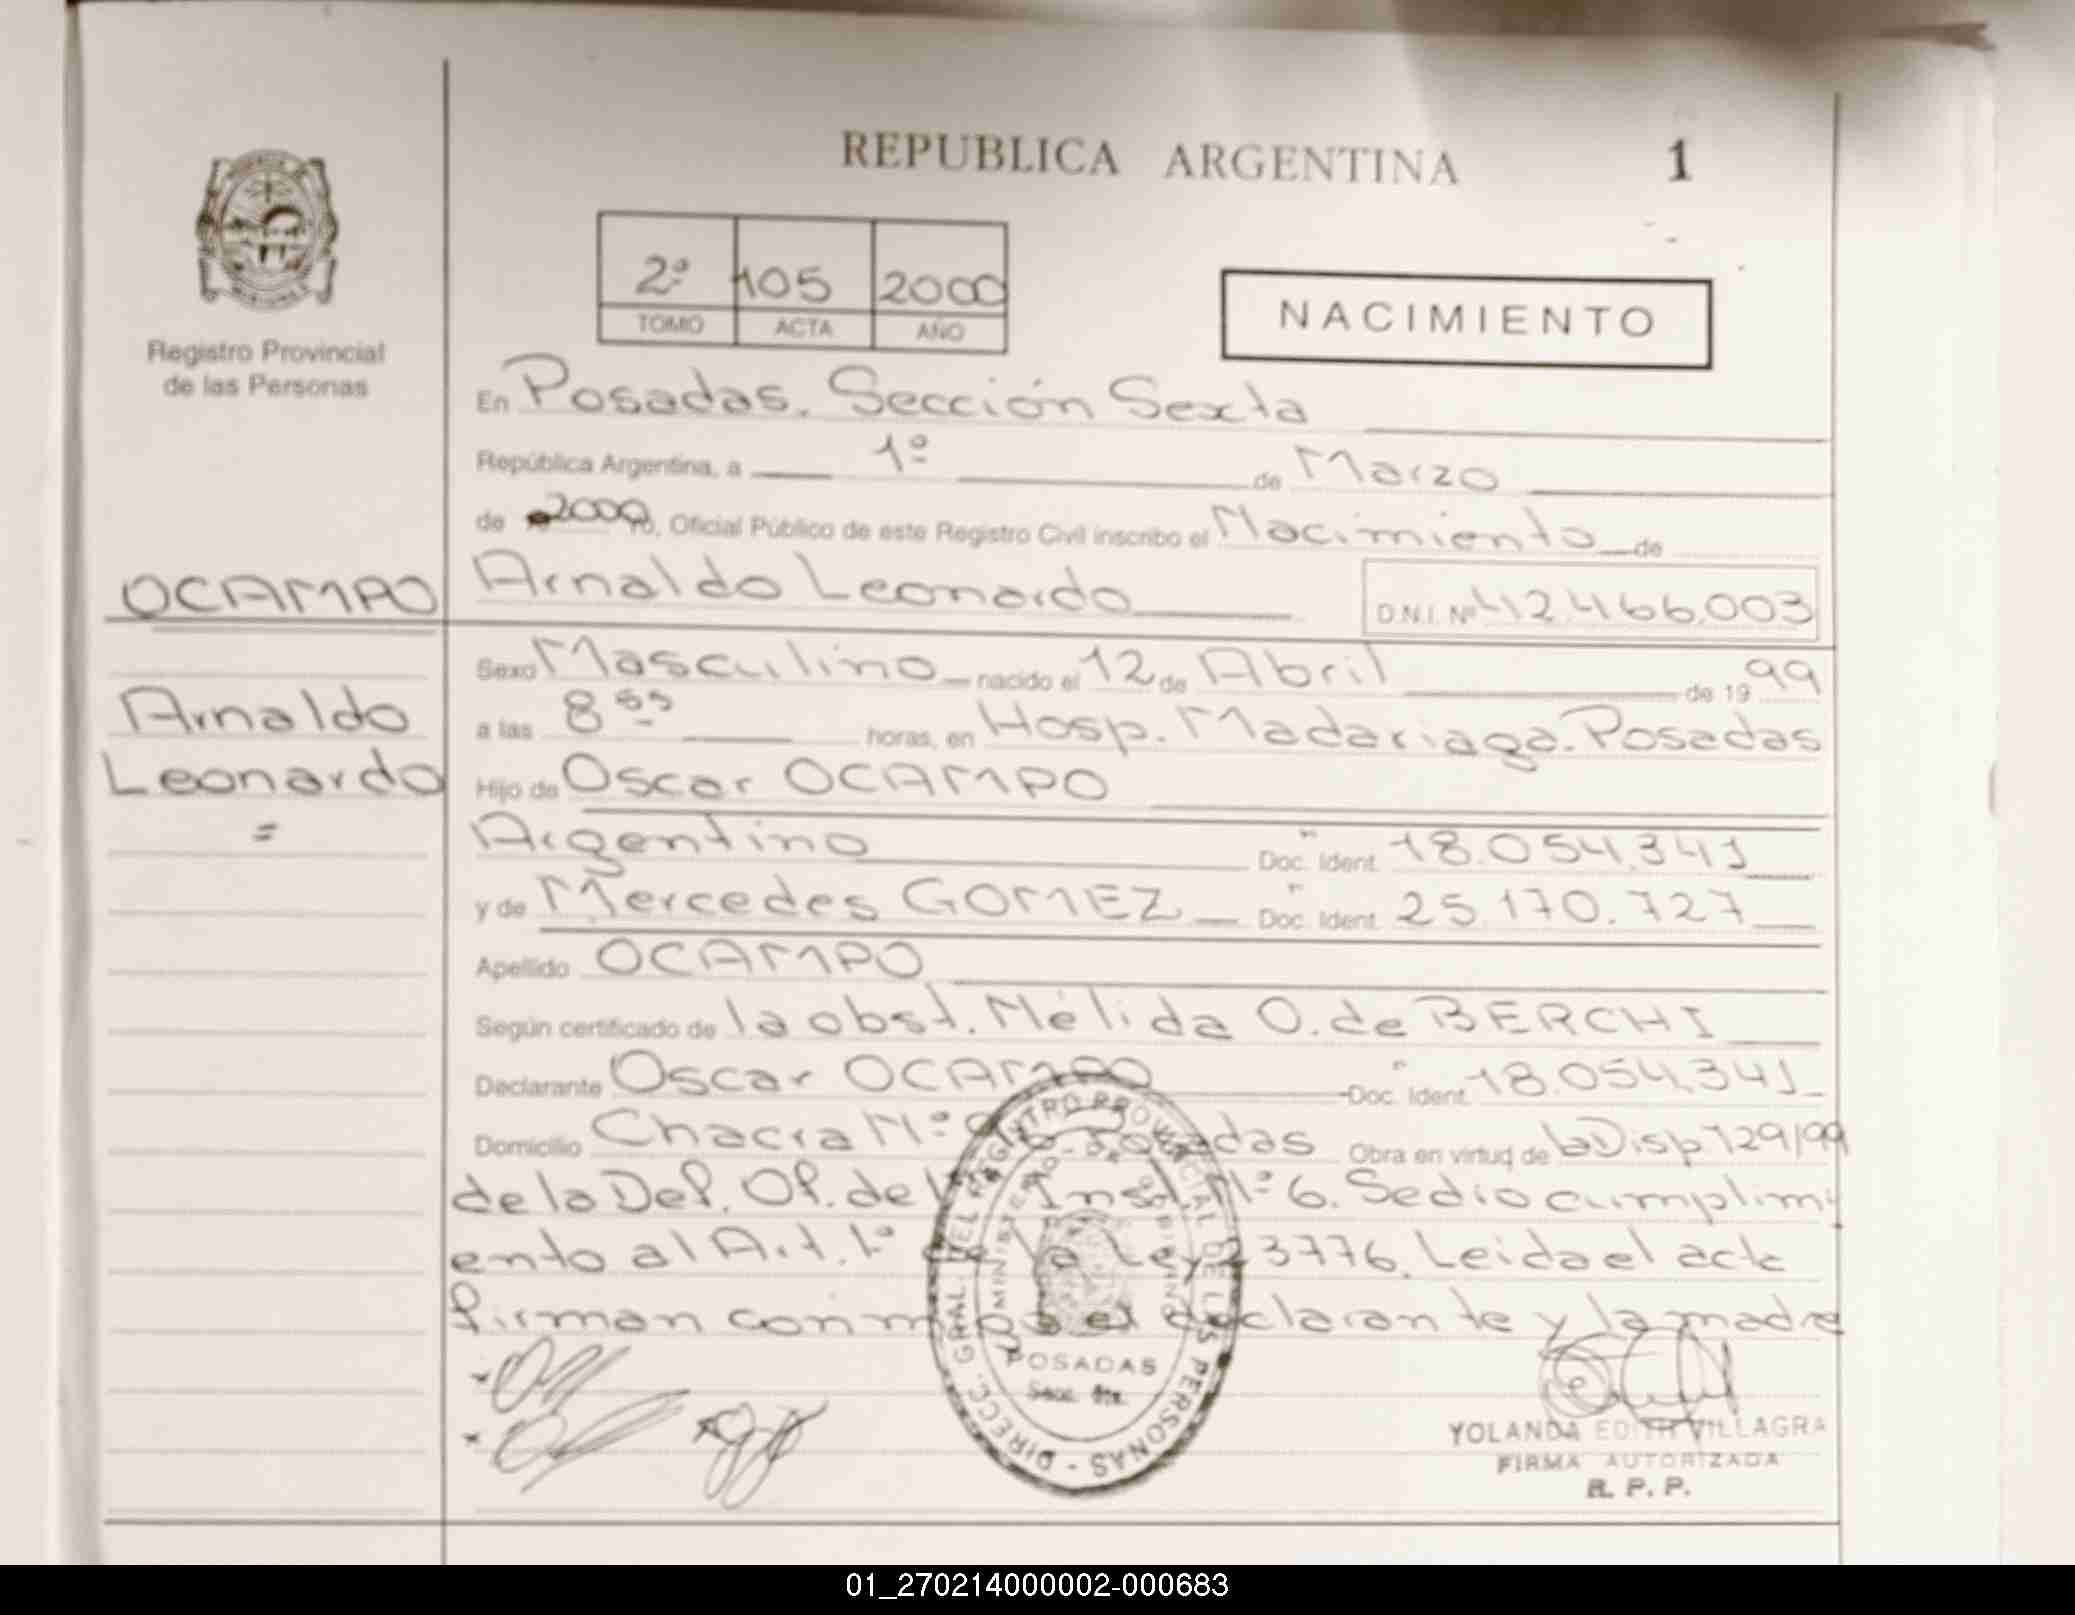 REPUBLICA ARGENTINA
1
2º 105 2000
TOMO ACTA AÑO
NACIMIENTO
Registro Provincial
de las Personas
En Posadas. Sección Sexta
República Argentina, a 1º de Marzo
de 2000 Yo, Oficial Público de este Registro Civil inscribo el Nacimiento de
OCAMPO
Arnaldo Leonardo D.N.I. Nº 42.466.003
Sexo Masculino nacido el 12 de Abril de 1999
Arnaldo
Leonardo
=
a las 8 55 horas, en Hosp. Madariaga. Posadas
Hijo de Oscar OCAMPO
Argentino Doc. Ident. 18.054.341
y de Mercedes GOMEZ Doc. Ident. 25.170.727
Apellido OCAMPO
Según certificado de la obst. Nélida O. de BERCHI
Declarante Oscar OCAMPO Doc. Ident. 18.054.341
Domicilio Chacra Nº Posadas Obra en virtud de la Disp 729/99
de la Def. Of. de Inst. Nº 6. Se dio cumplimi
ento al Art. 1º de la Ley 23776. Leida el acta
firman conmigo el declarante y la madre
DIRECC. GRAL. DEL REGISTRO PROVINCIAL DE LAS PERSONAS
MINISTERIO DE GOBIERNO
POSADAS
Secc. 6ta.
YOLANDA EDITH VILLAGRA
FIRMA AUTORIZADA
R. P. P.
01_270214000002-000683